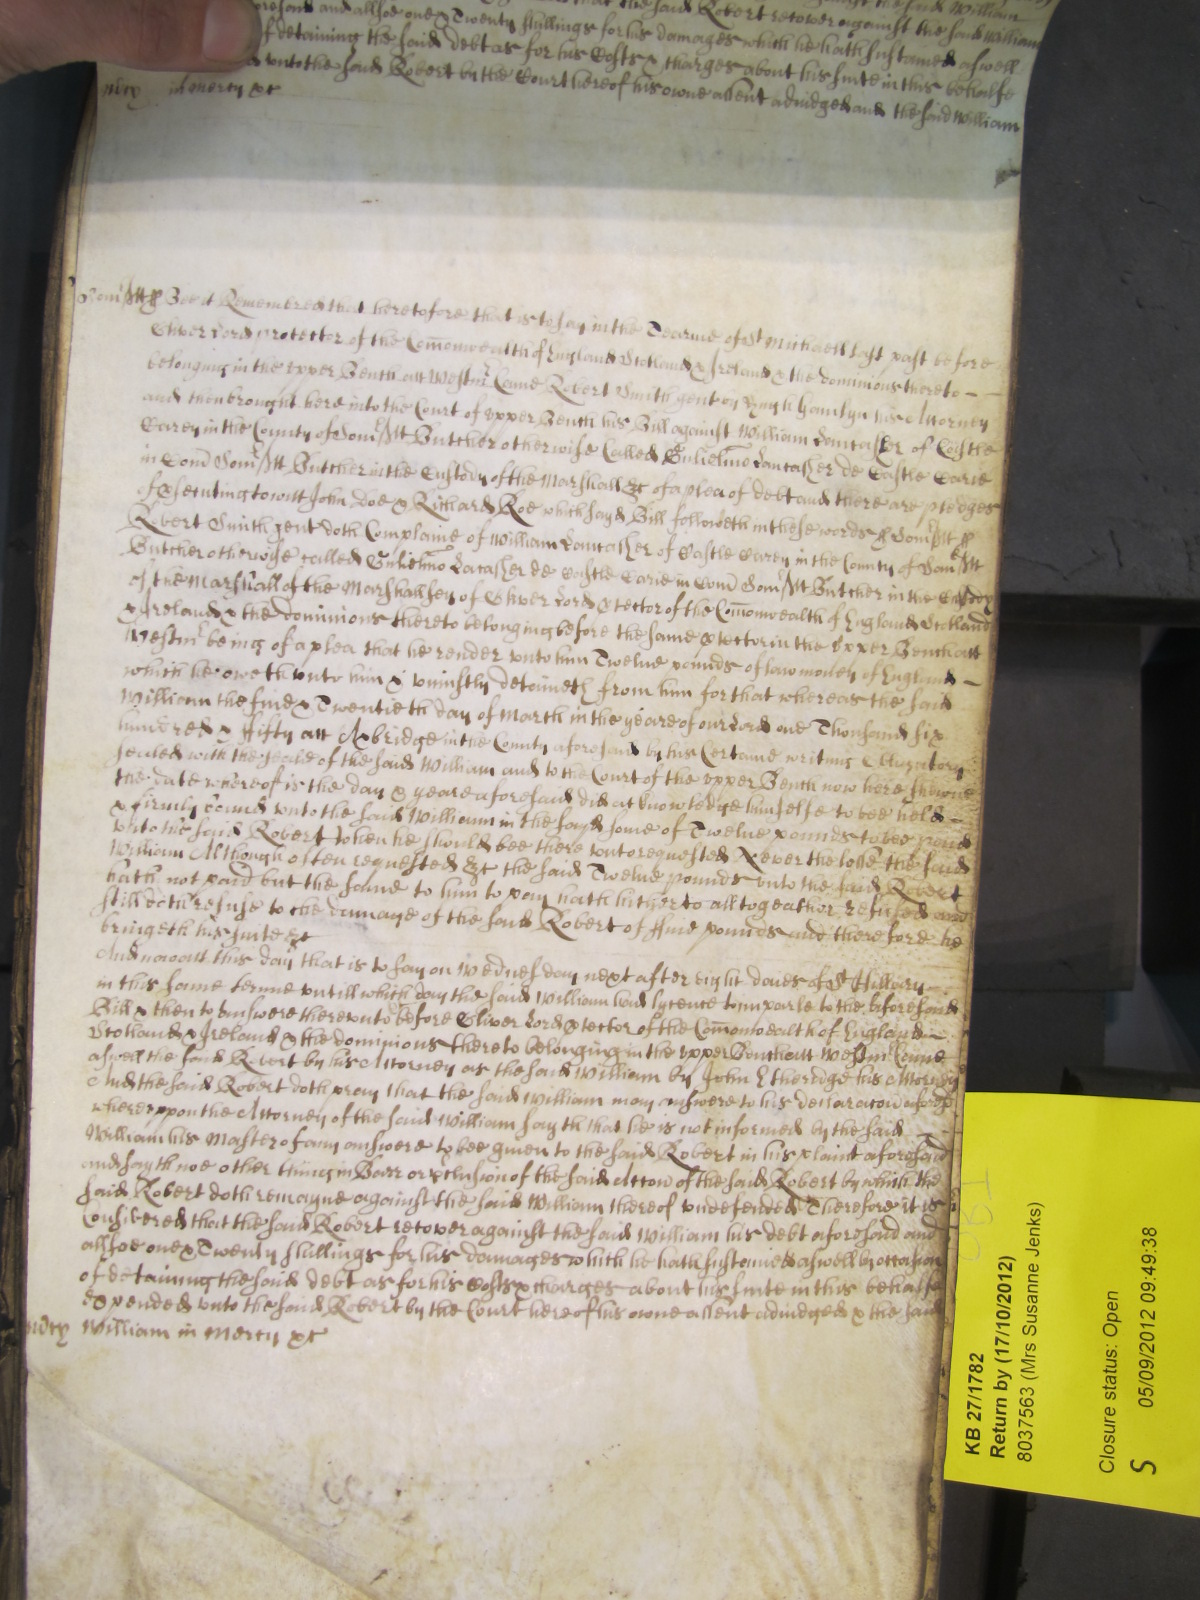 that the said Robert recover against the said William
aforesaid and allsoe one & Twenty shillings for his damages which he hath sustained aswell
of detaining the said debt as for his Costs & charges about his suite in this behalfe
unto the said Robert by the Court hereof his owne assent adiudged and the said William
mcy in mercy &c
Som'sett ss Bee it Remembred that heretofore that is to say in the Tearme of St Michaell last past before
Oliver Lord protector of the Com̄onwealth of England Scotland & Ireland & the dominions thereto
belonging in the upper Bench att Westmr Came Robert Smith gent by Hugh Hamlyn his Attorney
and then brought here into the Court of upper Bench his Bill against William Lancaster of Castle
Carey in the County of Som'sett Butcher otherwise Called Gulielmo Lancaster de Castle Carie
in Com̄ Som'sett Butcher in the Custody of the Marshall &c of a plea of debt and there are pledges
of p'secuting to witt John Doe & Richard Roe which sayd Bill followeth in these words ss Som'sett ss
Robert Smith gent doth Complaine of William Lancaster of Castle Carey in the County of Som'sett
Butcher otherwise called Gulielmo Lacaster de Castle Carie in Com̄ Som'sett Butcher in the Custody
of the Marshall of the Marshallsey of Oliver Lord p'tector of the Com̄onwealth of England Scotland
& Ireland & the dominions thereto belonging before the same p'tector in the Upper Bench att
Westmr being of a plea that he render unto him Twelve pounds of law money of England
which he oweth unto him & uniustly detaineth from him for that whereas the said
William the five & Twentieth day of March in the yeare of our Lord one Thousand six
hundred & fifty att Axbridge in the County aforesaid by his Certaine writing Obligatory
sealed with the seale of the said William and to the Court of the upper Bench now here shewne
the date whereof is the day & yeare aforesaid did acknowledge himselfe to bee held
& firmly bound unto the said William in the sayd some of Twelve pounds to bee paied
unto the said Robert when he should bee there unto requested Neverthelesse the said
William Although often requested &c the said Twelve pounds unto the said Robert
hath not paid but the same to him to pay hath hitherto alltogeather refused and
still doth refuse to the damage of the said Robert of ffive pounds and therefore he
bringeth his suite &c
And now att this day that is to say on Wednesday next after eight daies of St Hillary
in this same terme untill which day the said William had lycence to imparle to the aforesaid
Bill & then to answere thereunto before Oliver Lord p'tector of the Com̄onwealth of England
Scotland & Ireland & the dominions thereto belonging in the upper Bench att Westmr Came
aswell the said Robert by his Attorney as the said William by John Etheridge his Attorney
And the said Robert doth pray that the said William may answere to his declaracon aforesd
whereuppon the Attorney of the said William sayth that he is not informed by the said
William his Master of any answere to bee given to the said Robert in his plaint aforesaid
and sayth noe other thing in Barr or p'clusion of the said Accon of the said Robert by which the
said Robert doth remayne against the said William thereof undefended Therefore it is
Considered that the said Robert recover against the said William his debt aforesaid and
allsoe one & Twenty shillings for his damages which he hath sustained aswell by occasion
of detaining the said debt as for his Costs & charges about his suite in this behalfe
expended unto the said Robert by the Court hereof his owne assent adiudged & the said
mcy William in mercy &c
KB 27/1782
Return by (17/10/2012)
8037563 (Mrs Susanne Jenks)
Closure status: Open
S 05/09/2012 09:49:38